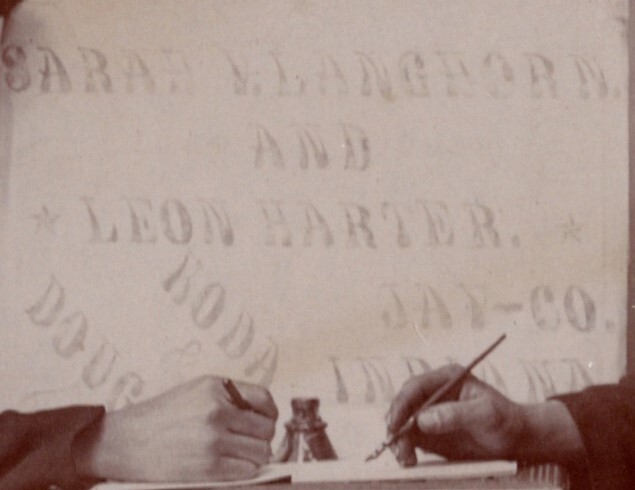 SARAH V. LANGHORN.
AND
★ LEON HARTER. ★
DOUG
& KODA
JAY-CO.
INDIANA